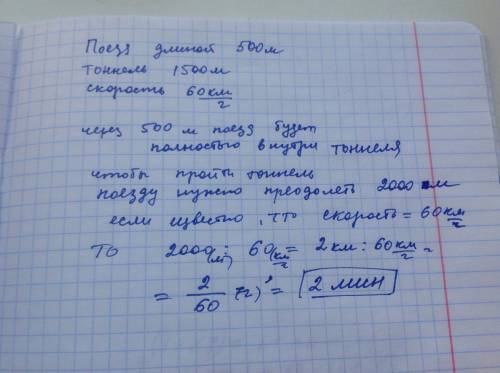 Поезд длиной 500м
тоннель 1500м
скорость 60 км/ч
через 500 м поезд будет
полностью внутри тоннеля
чтобы пройти тоннель
поезду нужно преодолеть 2000 м
если известно, что скорость = 60 км/ч
то 2000(м) : 60(км/ч) = 2 км : 60 км/ч =
= 2/60 (ч) = 2 мин